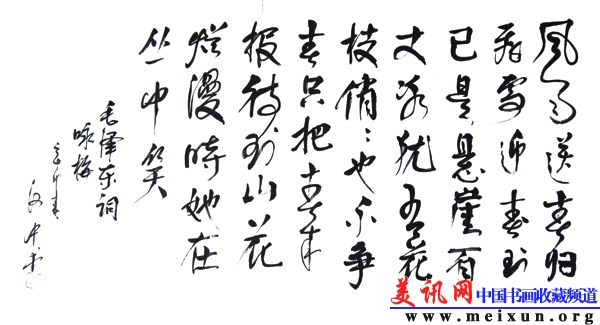 风雨送春归
飞雪迎春到
已是悬崖百
丈冰犹有花
枝俏々也不争
春只把春来
报待到山花
烂漫时她在
丛中笑
毛泽东词
咏梅
美讯网 中国书画收藏频道
www.meixun.org